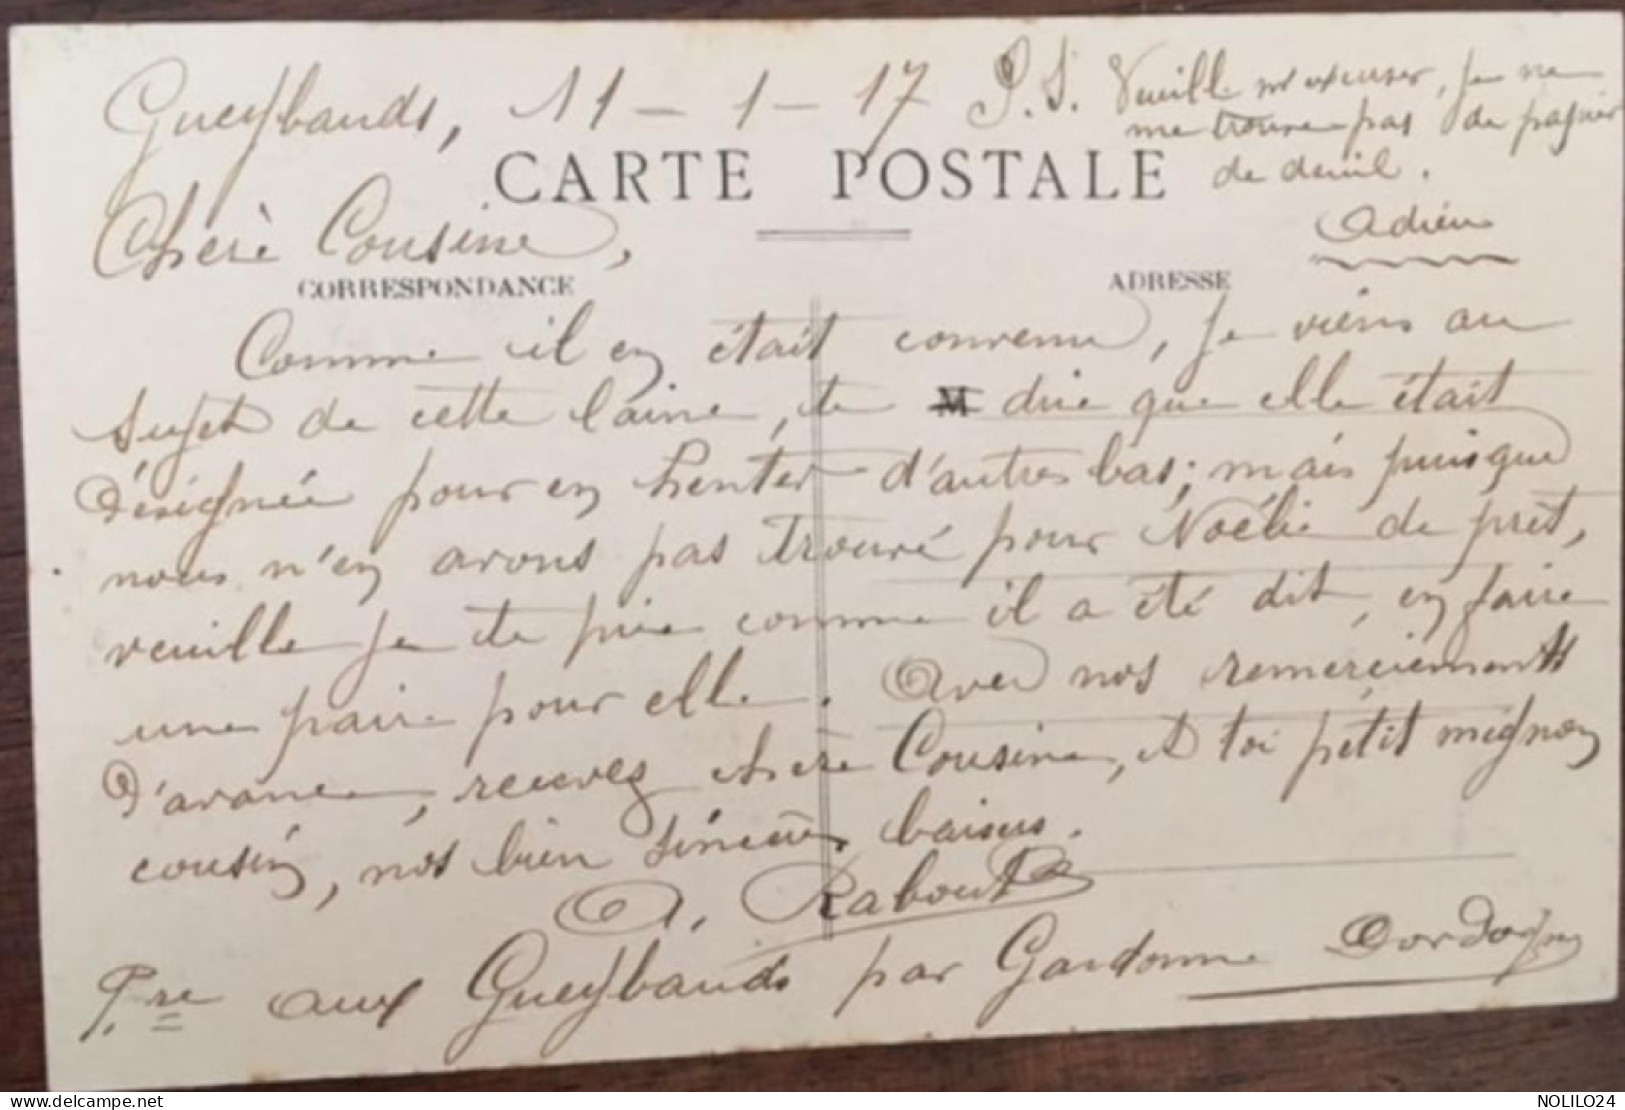 Gueybauds, 11 - 1 - 17
P.S. Veuille m'excuser, je ne
me trouve pas de papier
de deuil.
Adieu
CARTE POSTALE
Chère Cousine,
CORRESPONDANCE
ADRESSE
Comme il en était convenu, je viens au
sujet de cette laine, te dire que elle était
désignée pour en henter d'autres bas; mais puisque
nous n'en avons pas trouvé pour Noélie de prêt,
veuille je te prie comme il a été dit, en faire
une paire pour elle. Avec nos remerciements
d'avance, recevez chère Cousine, et toi petit mignon
cousin, nos bien sincères baisers.
A. Rabout
Pre aux Gueybauds par Gardonne Dordogne
delcampe.net
NOLILO24